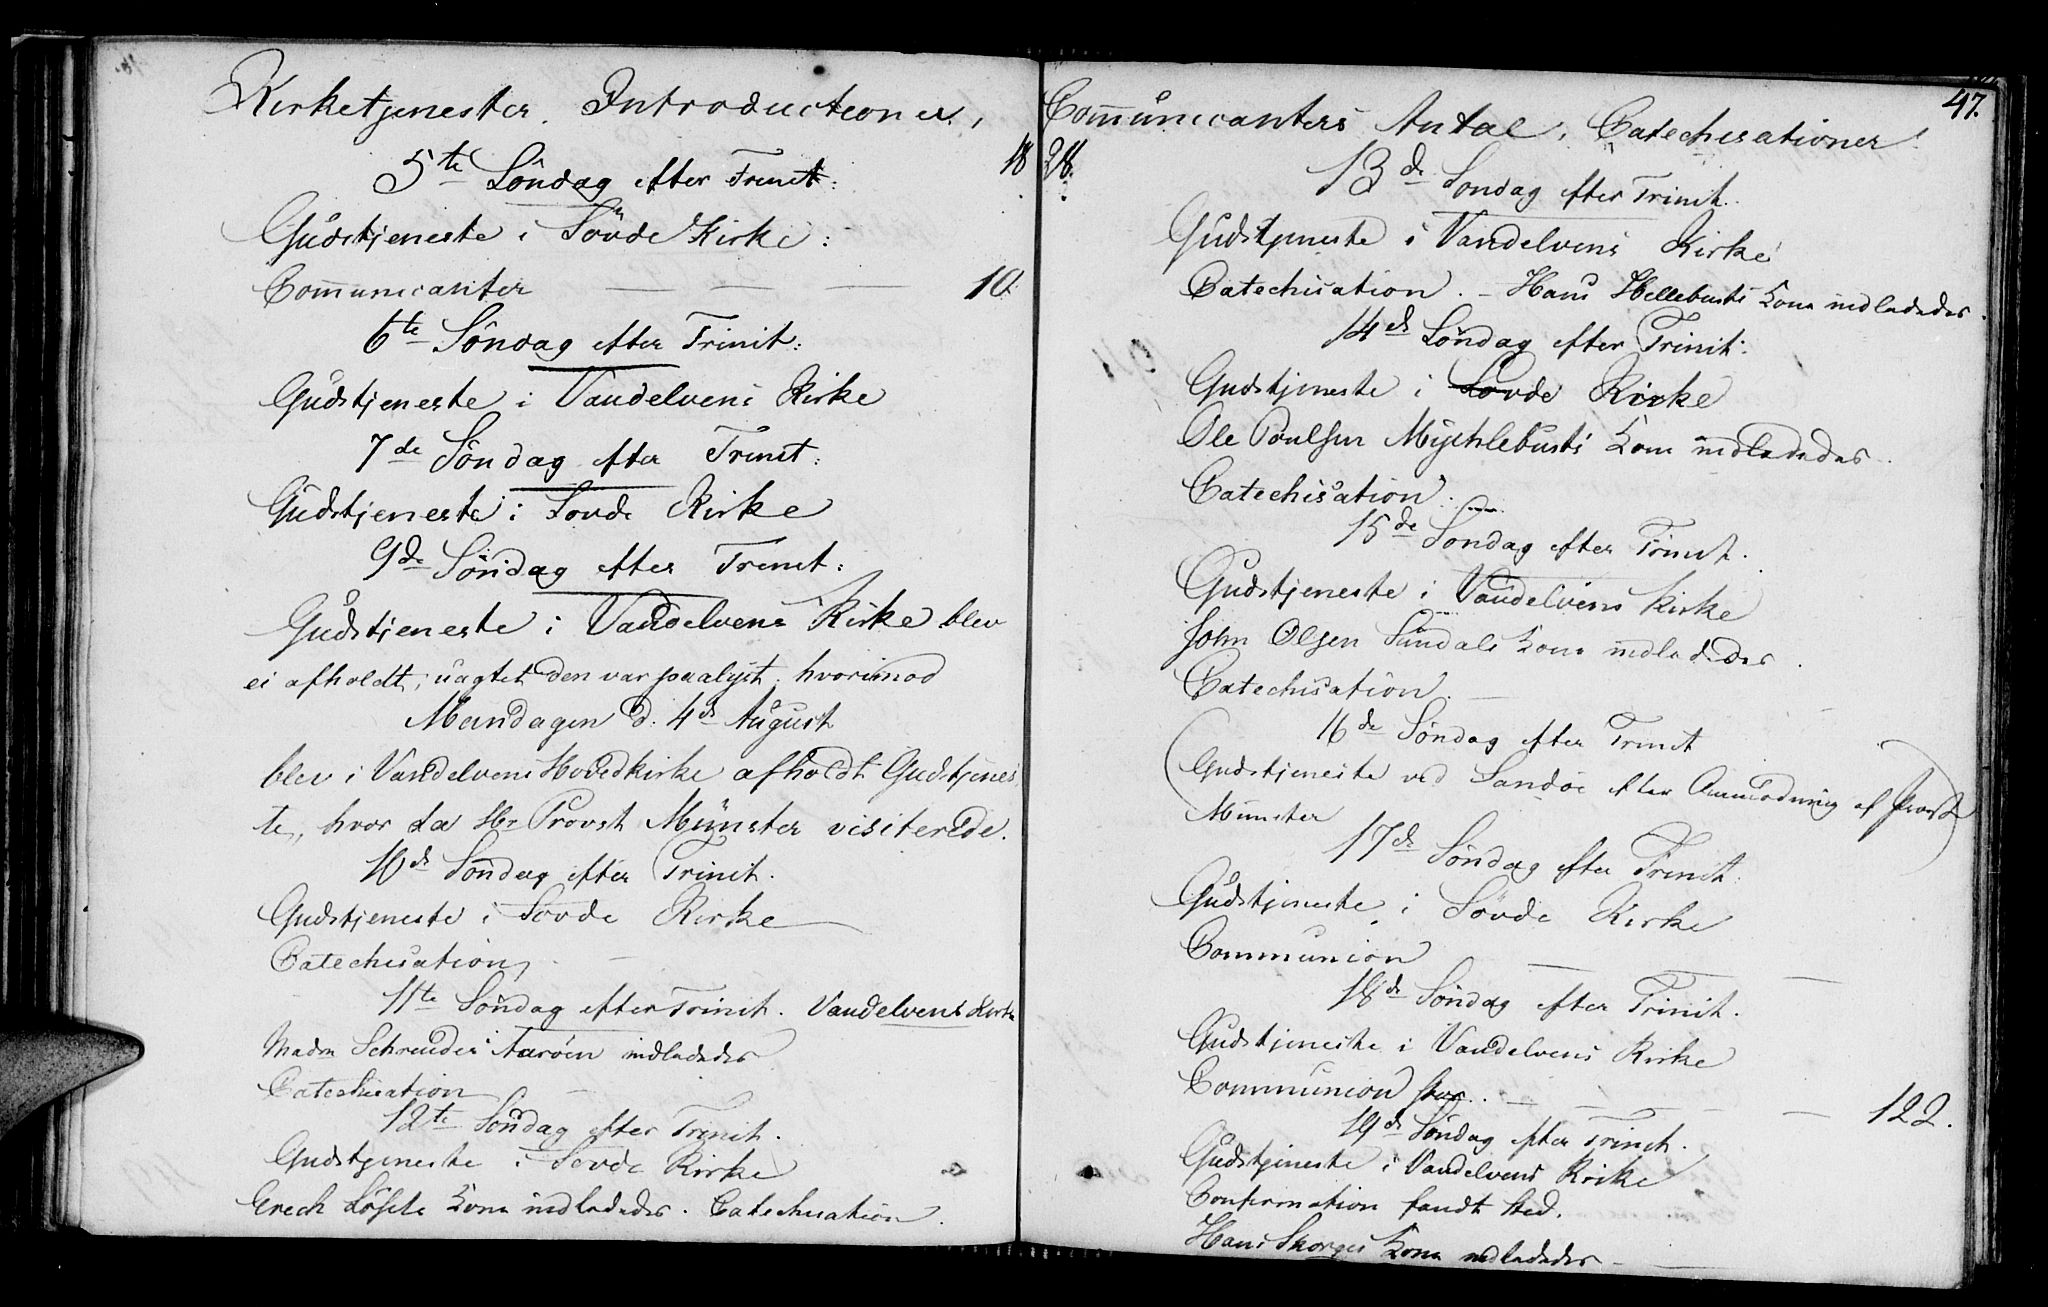 Kirketjenester. Introductioner,
18
5te Søndag efter Trinit:
Gudstjeneste i Søvde Kirke:
Communicanter — — — 10.
6te Søndag efter Trinit:
Gudstjeneste i Vandelvens Kirke
7de Søndag efter Trinit:
Gudstjeneste i Sovde Kirke
9de Søndag efter Trinit:
Gudstjeneste i Vandelvens Kirke blev
ei afholdt, uagtet den var paalyst. hvorimod
Mandagen d. 4de August
blev i Vandelvens Hovedkirke afholdt Gudstjenes
te, hvor da Hr Provst Münster visiterede.
10de Søndag efter Trinit.
Gudstjeneste i Sovde Kirke
Catechisation,
11te Søndag efter Trinit. Vandelvens Kirke
Madm Schreuder Aarøen indledades
Catechisation
12te Søndag efter Trinit.
Gudstjeneste i Sovde Kirke
Erech kone indledades. Catechisation.
Communicanters Antal, Catechisationer.
47.
13de Søndag efter Trinit.
Gudstjeneste i Vandelvens Kirke
Catechisation. – Hans Hellebusts Kone indledades.
14de Søndag efter Trinit.
Gudstjeneste i Sovde Kirke
Ole Poulsen Mychlebusts Kone indledades.
Catechisation.
15de Søndag efter Trinit.
Gudstjeneste i Vandelvens Kirke
John Olsen Sundals Kone indledades.
Catechisation. —
16de Søndag efter Trinit
Gudstjeneste ved Sandøe efter Anmodning af Provst
Münster
17de Søndag efter Trinit.
Gudstjeneste i Søvde Kirke
Communion — — —
18de Søndag efter Trinit.
Gudstjeneste i Vandelvens Kirke
Communion — — — 122.
19de Søndag efter Trinit.
Gudstjeneste i Vandelvens Kirke
Confirmation fandt sted.
Hans Skorges Kone indledades –